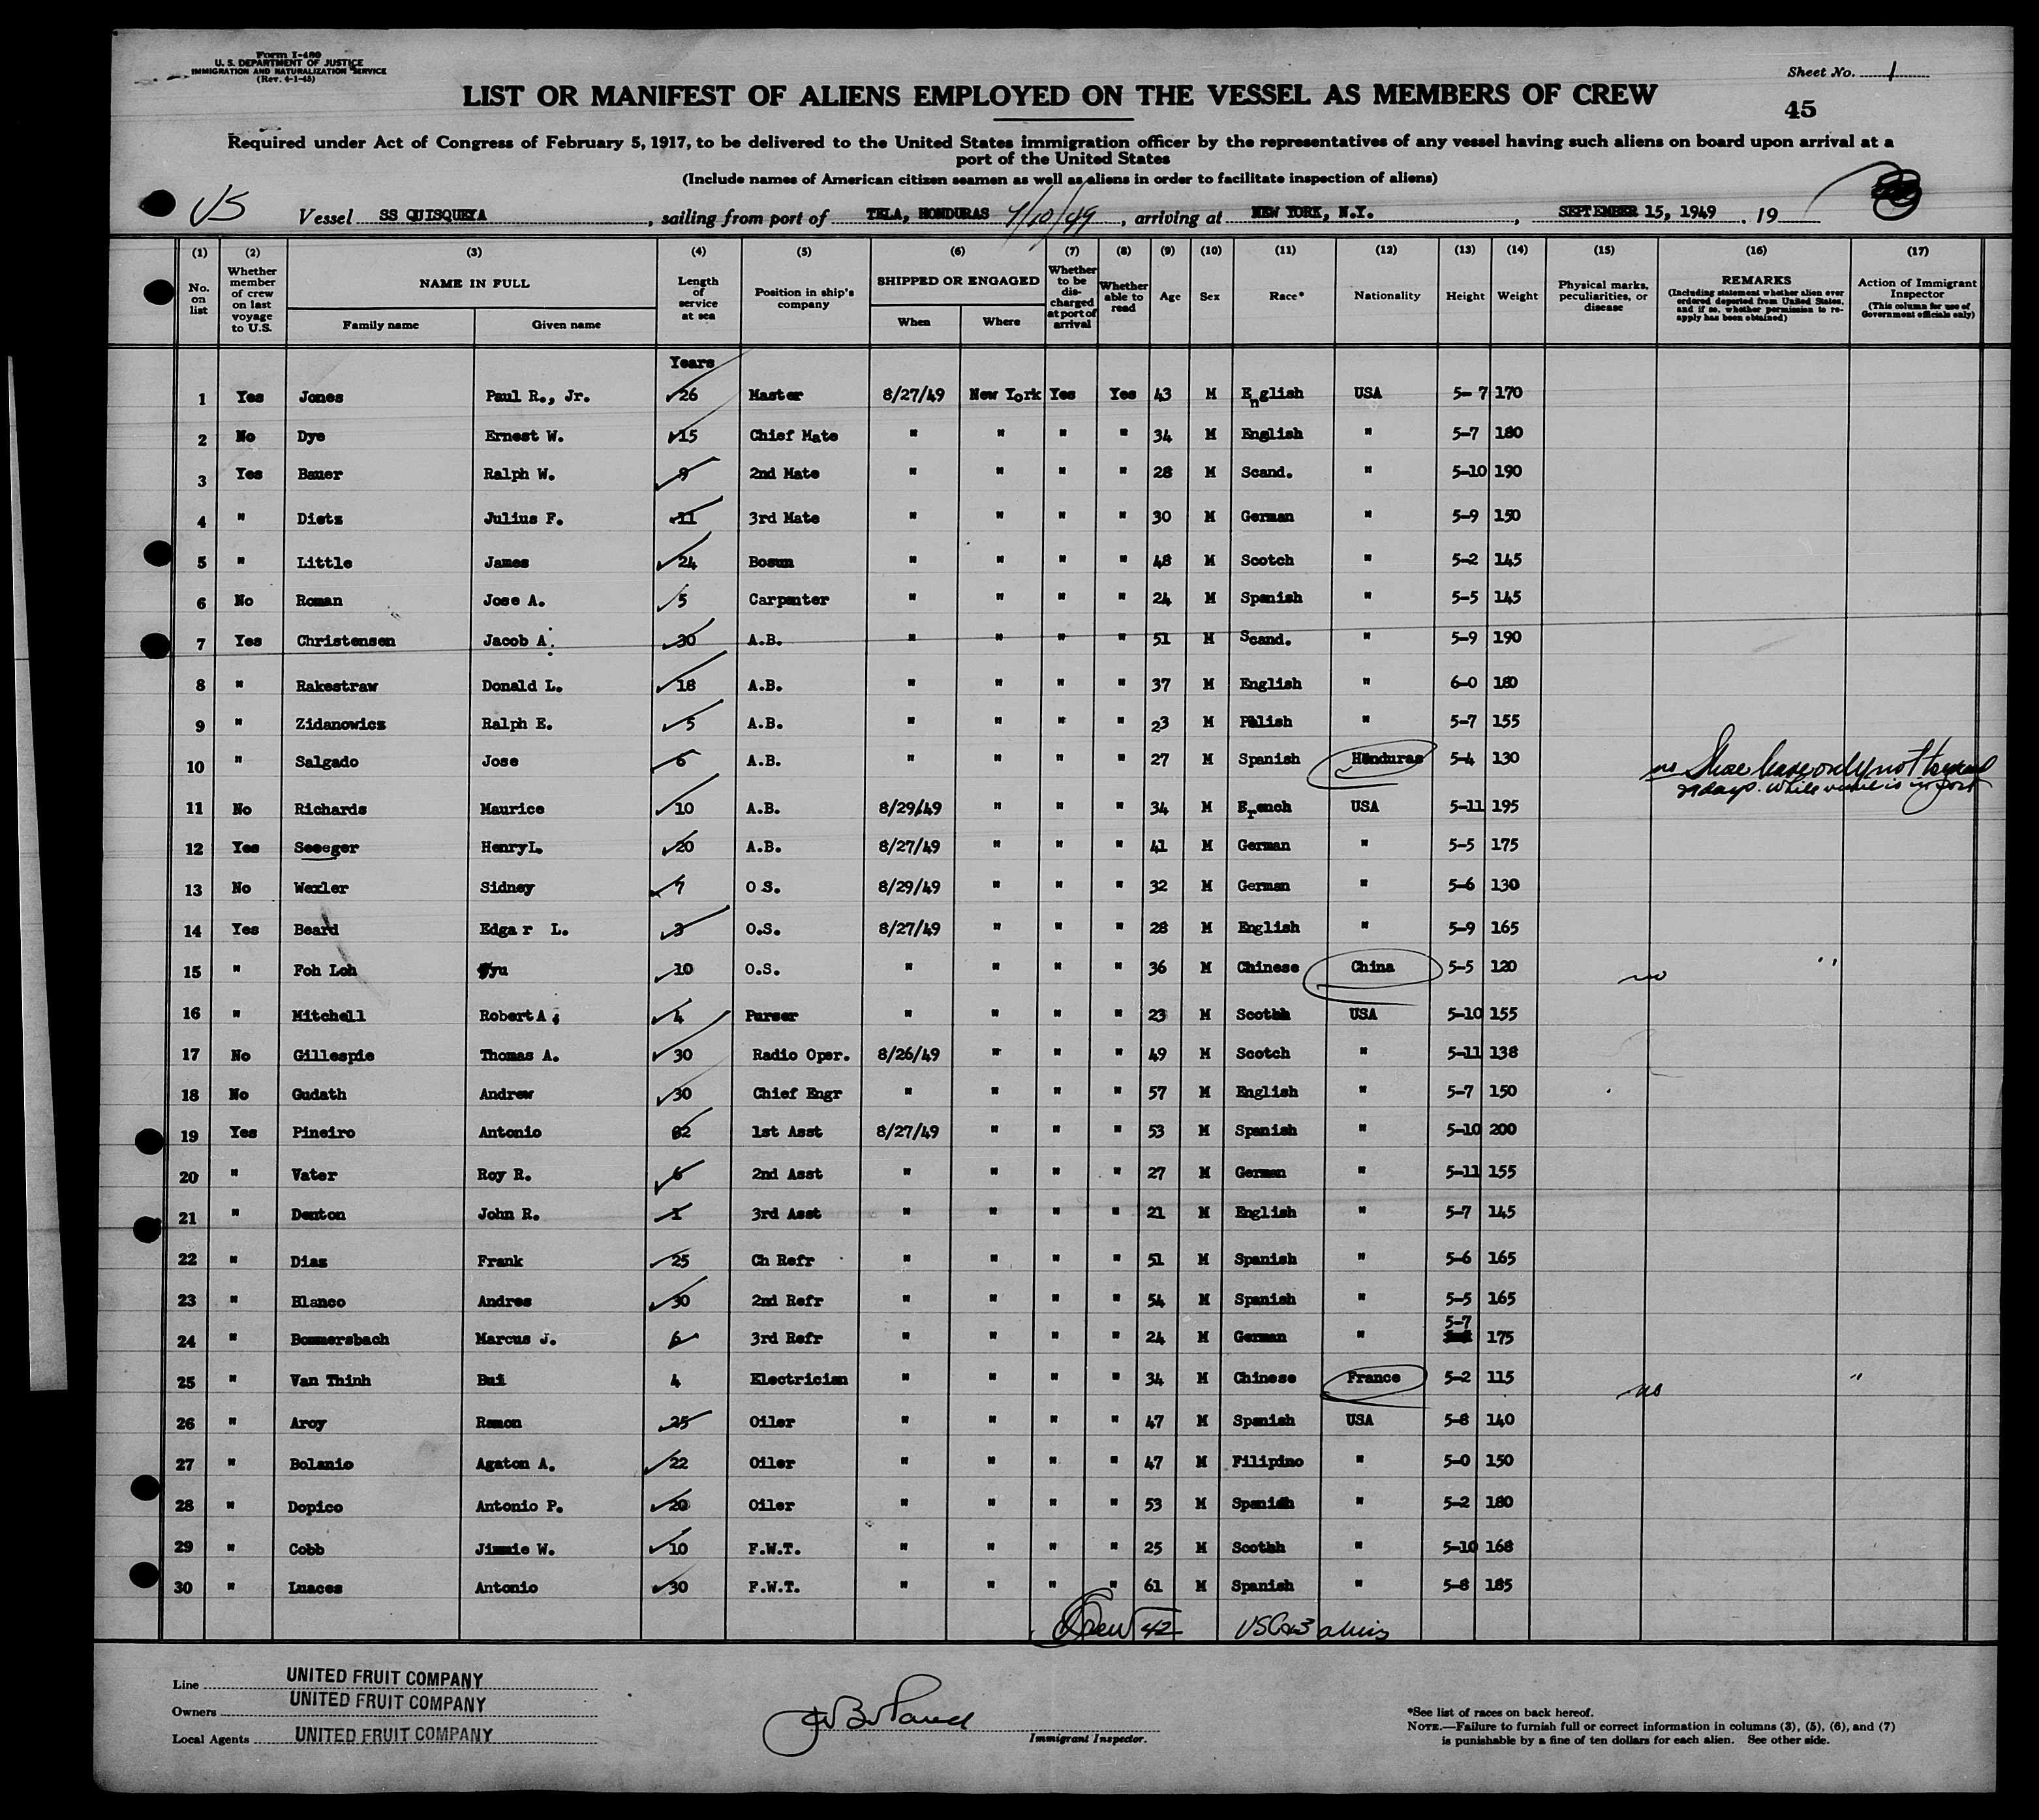 Form I-480
U. S. DEPARTMENT OF JUSTICE
IMMIGRATION AND NATURALIZATION SERVICE
(Rev. 4-1-45)
Sheet No. 1
LIST OR MANIFEST OF ALIENS EMPLOYED ON THE VESSEL AS MEMBERS OF CREW
45
Required under Act of Congress of February 5, 1917, to be delivered to the United States immigration officer by the representatives of any vessel having such aliens on board upon arrival at a
port of the United States
(Include names of American citizen seamen as well as aliens in order to facilitate inspection of aliens)
US Vessel SS QUISQUEYA, sailing from port of TELA, HONDURAS 9/10/49, arriving at NEW YORK, N.Y., SEPTEMBER 15, 1949. 19
(1) (2) (3) (4) (5) (6) (7) (8) (9) (10) (11) (12) (13) (14) (15) (16) (17)
No. on list
Whether member of crew on last voyage to U.S.
NAME IN FULL
Family name Given name
Length of service at sea
Position in ship's company
SHIPPED OR ENGAGED
When Where
Whether to be discharged at port of arrival
Whether able to read
Age
Sex
Race*
Nationality
Height
Weight
Physical marks, peculiarities, or disease
REMARKS
(Including statement whether alien ever ordered deported from United States, and if so, whether permission to re-apply has been obtained)
Action of Immigrant Inspector
(This column for use of Government officials only)
Years
1 Yes Jones Paul R., Jr. 26 Master 8/27/49 New York Yes Yes 43 M English USA 5-7 170
2 No Dye Ernest W. 15 Chief Mate " " " " 34 M English " 5-7 180
3 Yes Bauer Ralph W. 9 2nd Mate " " " " 28 M Scand. " 5-10 190
4 " Dietz Julius F. 11 3rd Mate " " " " 30 M German " 5-9 150
5 " Little James 24 Bosun " " " " 48 M Scotch " 5-2 145
6 No Roman Jose A. 5 Carpenter " " " " 24 M Spanish " 5-5 145
7 Yes Christensen Jacob A. 30 A.B. " " " " 51 M Scand. " 5-9 190
8 " Rakestraw Donald L. 18 A.B. " " " " 37 M English " 6-0 180
9 " Zidanowicz Ralph E. 5 A.B. " " " " 23 M Polish " 5-7 155
10 " Salgado Jose 6 A.B. " " " " 27 M Spanish Honduras 5-4 130 no Shore leave only not to exceed
29 days. While vessel is in port
11 No Richards Maurice 10 A.B. 8/29/49 " " " 34 M French USA 5-11 195
12 Yes Seeeger HenryL. 20 A.B. 8/27/49 " " " 41 M German " 5-5 175
13 No Wexler Sidney 7 O S. 8/29/49 " " " 32 M German " 5-6 130
14 Yes Beard Edga r L. 3 O.S. 8/27/49 " " " 28 M English " 5-9 165
15 " Foh Loh yu 10 O.S. " " " " 36 M Chinese China 5-5 120 no "
16 " Mitchell Robert A. 4 Purser " " " " 23 M Scotch USA 5-10 155
17 No Gillespie Thomas A. 30 Radio Oper. 8/26/49 " " " 49 M Scotch " 5-11 138
18 No Gudath Andrew 30 Chief Engr " " " " 57 M English " 5-7 150
19 Yes Pineiro Antonio 32 1st Asst 8/27/49 " " " 53 M Spanish " 5-10 200
20 " Vater Roy R. 6 2nd Asst " " " " 27 M German " 5-11 155
21 " Denton John R. 1 3rd Asst " " " " 21 M English " 5-7 145
22 " Diaz Frank 25 Ch Refr " " " " 51 M Spanish " 5-6 165
23 " Blanco Andres 30 2nd Refr " " " " 54 M Spanish " 5-5 165
24 " Bommersbach Marcus J. 6 3rd Refr " " " " 24 M German " 5-7 175
25 " Van Thinh Bui 4 Electrician " " " " 34 M Chinese France 5-2 115 no "
26 " Aroy Ramon 25 Oiler " " " " 47 M Spanish USA 5-8 140
27 " Bolanio Agaton A. 22 Oiler " " " " 47 M Filipino " 5-0 150
28 " Dopico Antonio P. 20 Oiler " " " " 53 M Spanish " 5-2 180
29 " Cobb Jimmie W. 10 F.W.T. " " " " 25 M Scotch " 5-10 168
30 " Luaces Antonio 30 F.W.T. " " " " 61 M Spanish " 5-8 185
Crew 42 USC & 3 aliens
Line UNITED FRUIT COMPANY
Owners UNITED FRUIT COMPANY
Local Agents UNITED FRUIT COMPANY
Immigrant Inspector.
*See list of races on back hereof.
NOTE.—Failure to furnish full or correct information in columns (3), (5), (6), and (7)
is punishable by a fine of ten dollars for each alien. See other side.